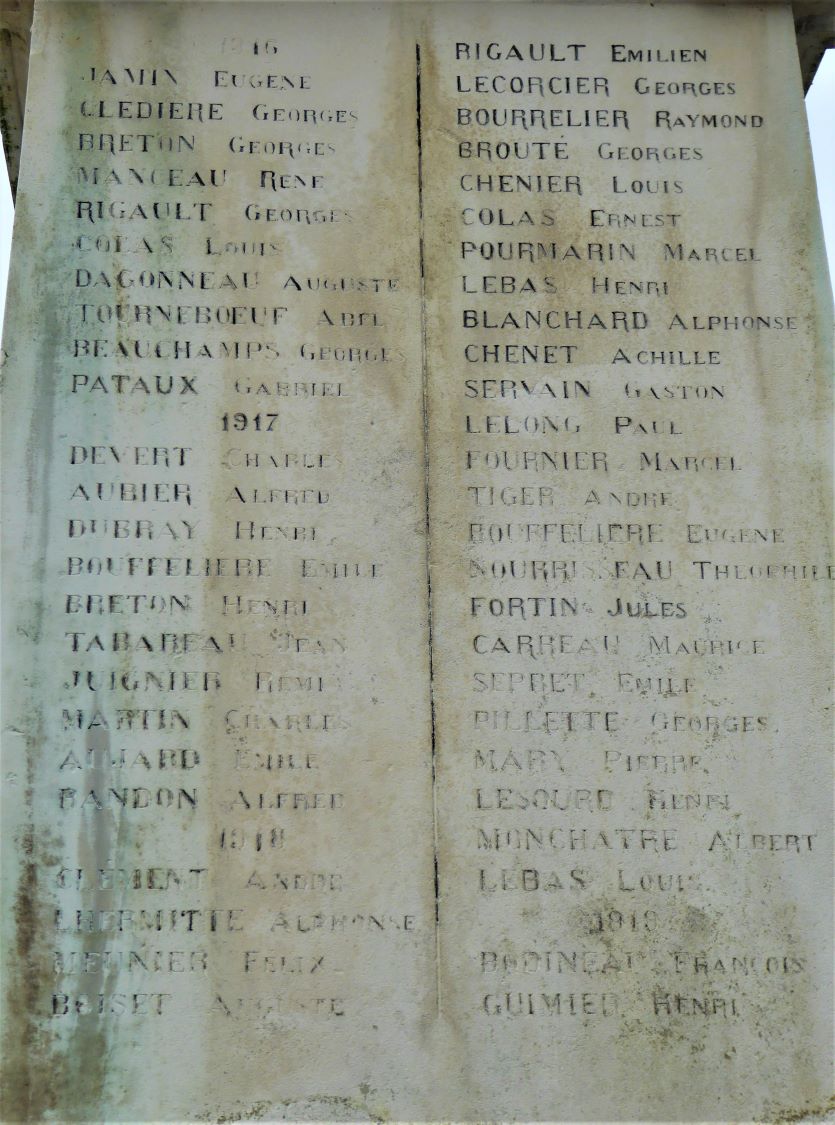 1916
JAMIN EUGENE
CLEDIERE GEORGES
BRETON GEORGES
MANCEAU RENE
RIGAULT GEORGES
COLAS LOUIS
DAGONNEAU AUGUSTE
TOURNEBOEUF ABEL
BEAUCHAMPS GEORGES
PATAUX GABRIEL
1917
DEVERT CHARLES
AUBIER ALFRED
DUBRAY HENRI
BOUFFELIERE EMILE
BRETON HENRI
TABAREAU JEAN
JUIGNIER REMI
MARTIN CHARLES
AUJARD EMILE
BANDON ALFRED
1918
CLEMENT ANDRE
LHERMITTE ALPHONSE
MEUNIER FELIX
BOISET AUGUSTE
RIGAULT EMILIEN
LECORCIER GEORGES
BOURRELIER RAYMOND
BROUTÉ GEORGES
CHENIER LOUIS
COLAS ERNEST
POURMARIN MARCEL
LEBAS HENRI
BLANCHARD ALPHONSE
CHENET ACHILLE
SERVAIN GASTON
LELONG PAUL
FOURNIER MARCEL
TIGER ANDRE
BOUFFELIERE EUGENE
NOURRISSEAU THEOPHILE
FORTIN JULES
CARREAU MAURICE
SEPRET EMILE
PILLETTE GEORGES
MARY PIERRE
LESOURD HENRI
MONCHATRE ALBERT
LEBAS LOUIS
1919
BODINEAU FRANÇOIS
GUIMIER HENRI